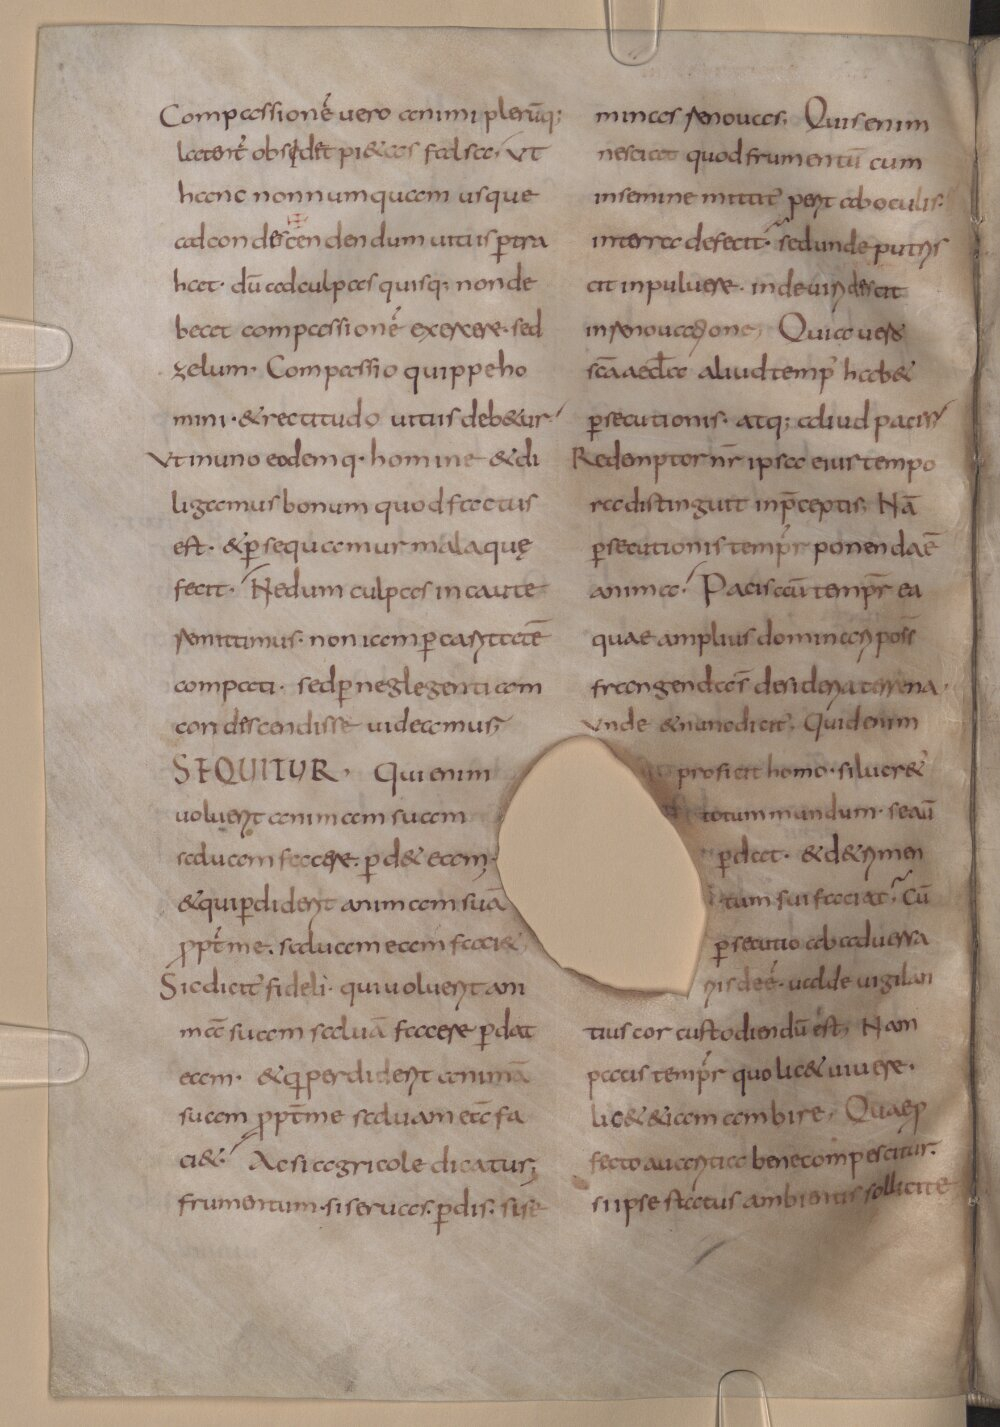 Compassionē vero animi plerūq;
latent̄ obsidet pi&as falsa; Ut
hanc nonnumquam usque
ad condescendendum uitiis ꝑtra
hat· dū ad culpas quisq; non de
beat compassionē exercere· sed
zelum· Compassio quippe ho
mini· & rectitudo uitiis deb&ur
Ut in uno eodemq· homine & di
ligamus bonum quod factus
est· & ꝑsequamur mala quę
fecit· Ne dum culpas incaute
remittimus· non iam ꝑ caritatē
compati· sed ꝑ neglegentiam
condescendisse uideamur
SEQUITUR· Qui enim
uoluerit animam suam
saluam facere· ꝑd& eam;
& qui ꝑdiderit animam suā
ꝓpt̄ me· saluam eam faci&
Sic dicit̄ fideli· qui uoluerit ani
mā suam saluā facere ꝑdat
eam· & q perdiderit animā
suam ꝓpt̄ me saluam eā fa
ci&· Ac si agricole dicatur;
frumentum· si seruas· ꝑdis· si se
minas renouas; Quis enim
nesciat quod frumentū cum
in semine mittit̄ perit ab oculis·
in terra defecit· sed unde putres
cit in puluere· inde uirdescit
in renouatione; Quia uero
scā aeccła aliud temp̄ hab&
ꝑsecutionis· atq; aliud pacis
Redemptor nr̄ ipsa eius tempo
ra distinguit in p̄ceptis; Nā
ꝑsecutionis tempr̄ ponenda ē
anima· Pacis aū tempr̄ ea
quae amplius dominari poss̄
frangenda s̄ desideria terrena·
Unde & nunc dicit̄; Quid enim
prosicit homo· si lucr&
totum mundum· se aū
ꝑdat· & d&rimen
tum sui faciat· Cū
ꝑsecutio ab aduersa
riis deē· ualde uigilan
tius cor custodiendū est; Nam
pacis tempr̄ quo lic& uiuere·
lic& & iam ambire; Quae ꝓ
fecto auaritia bene compescitur·
si ipse status ambientis sollicite